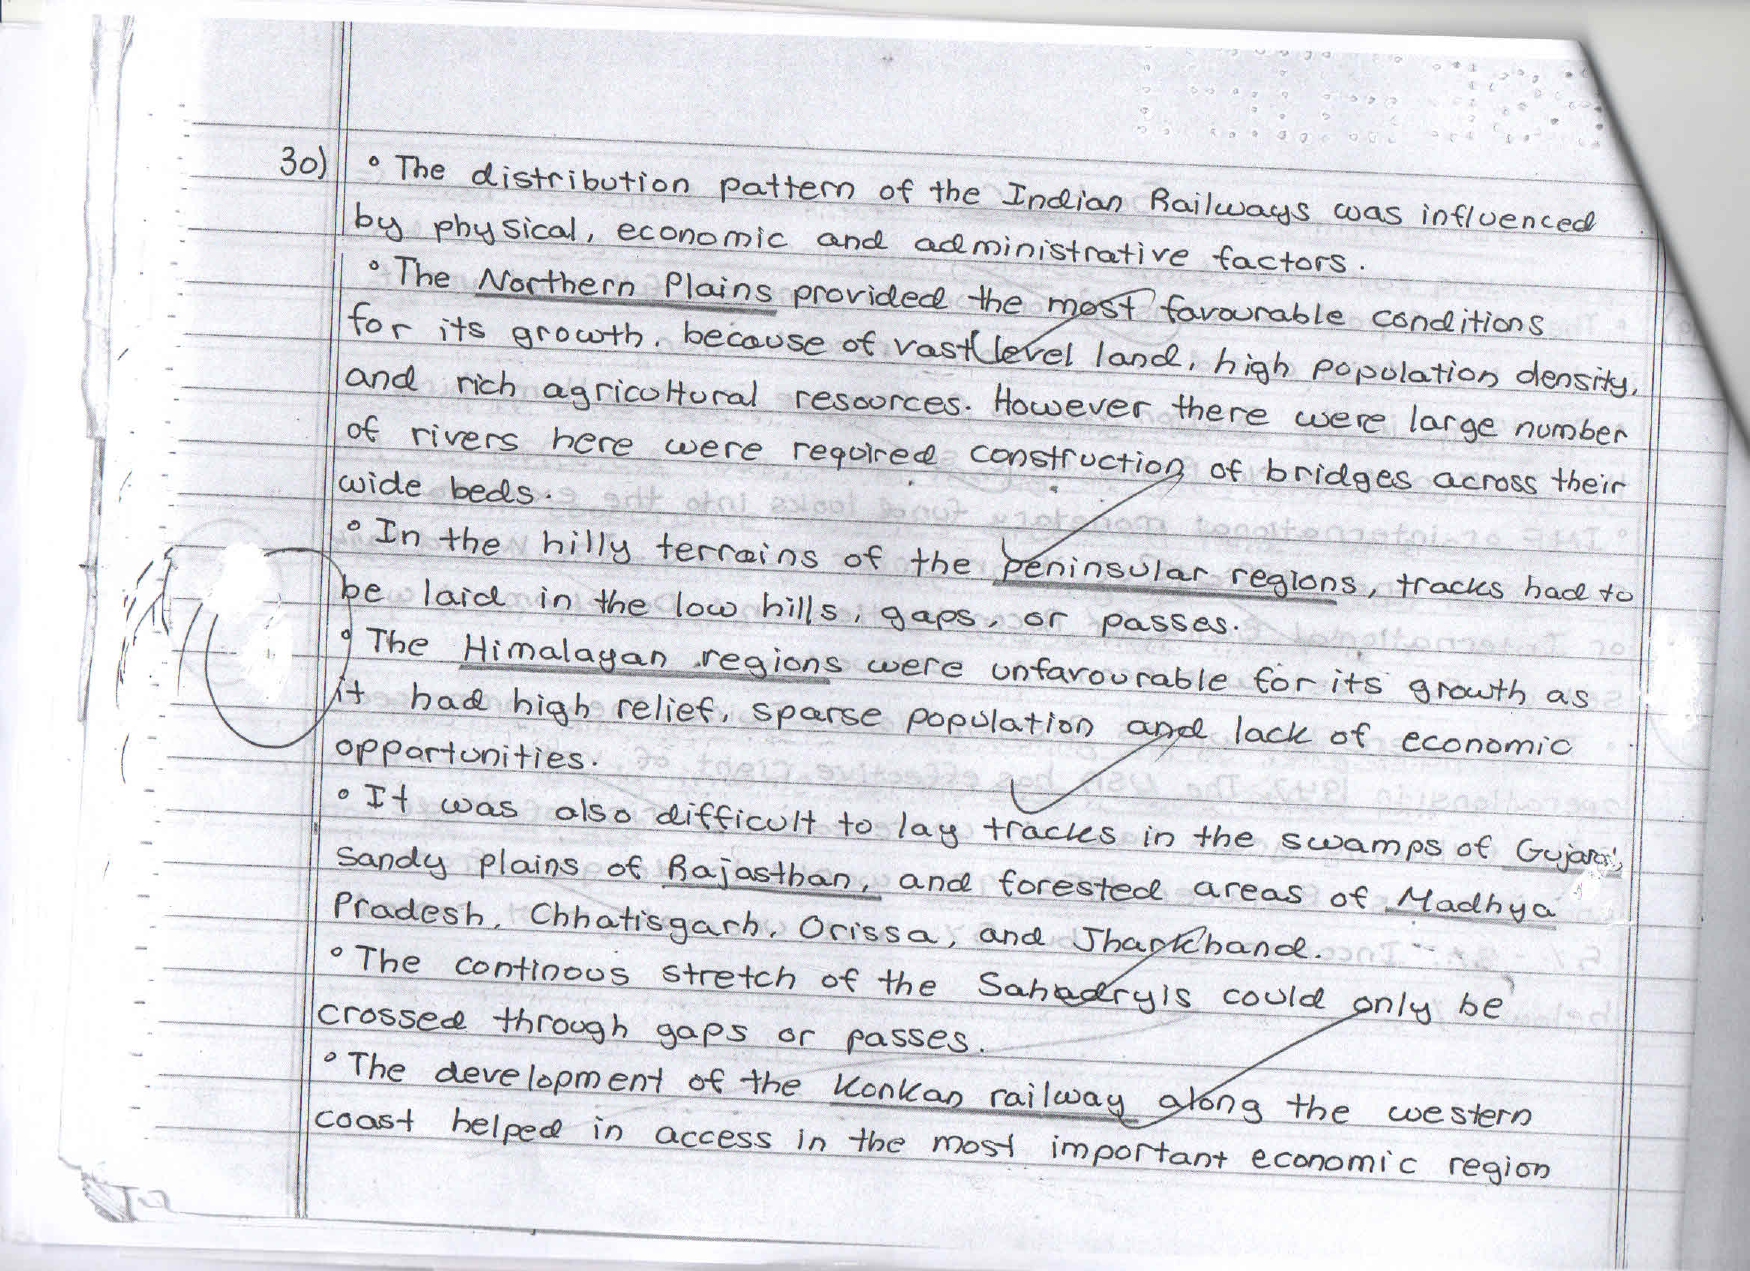 30) ° The distribution pattern of the Indian Railways was influenced
by physical, economic and administrative factors.
° The Northern Plains provided the most favourable conditions
for its growth, because of vast level land, high population density,
and rich agricultural resources. However there were large number
of rivers here were required construction of bridges across their
wide beds.
° In the hilly terrains of the peninsular regions, tracks had to
be laid in the low hills, gaps, or passes.
° The Himalayan regions were unfavourable for its growth as
it had high relief, sparse population and lack of economic
opportunities.
° It was also difficult to lay tracks in the swamps of Gujarat,
sandy plains of Rajasthan, and forested areas of Madhya
Pradesh, Chhatisgarh, Orissa, and Jharkhand.
° The continous stretch of the Sahadryis could only be
crossed through gaps or passes.
° The development of the Konkan railway along the western
coast helped in access in the most important economic region